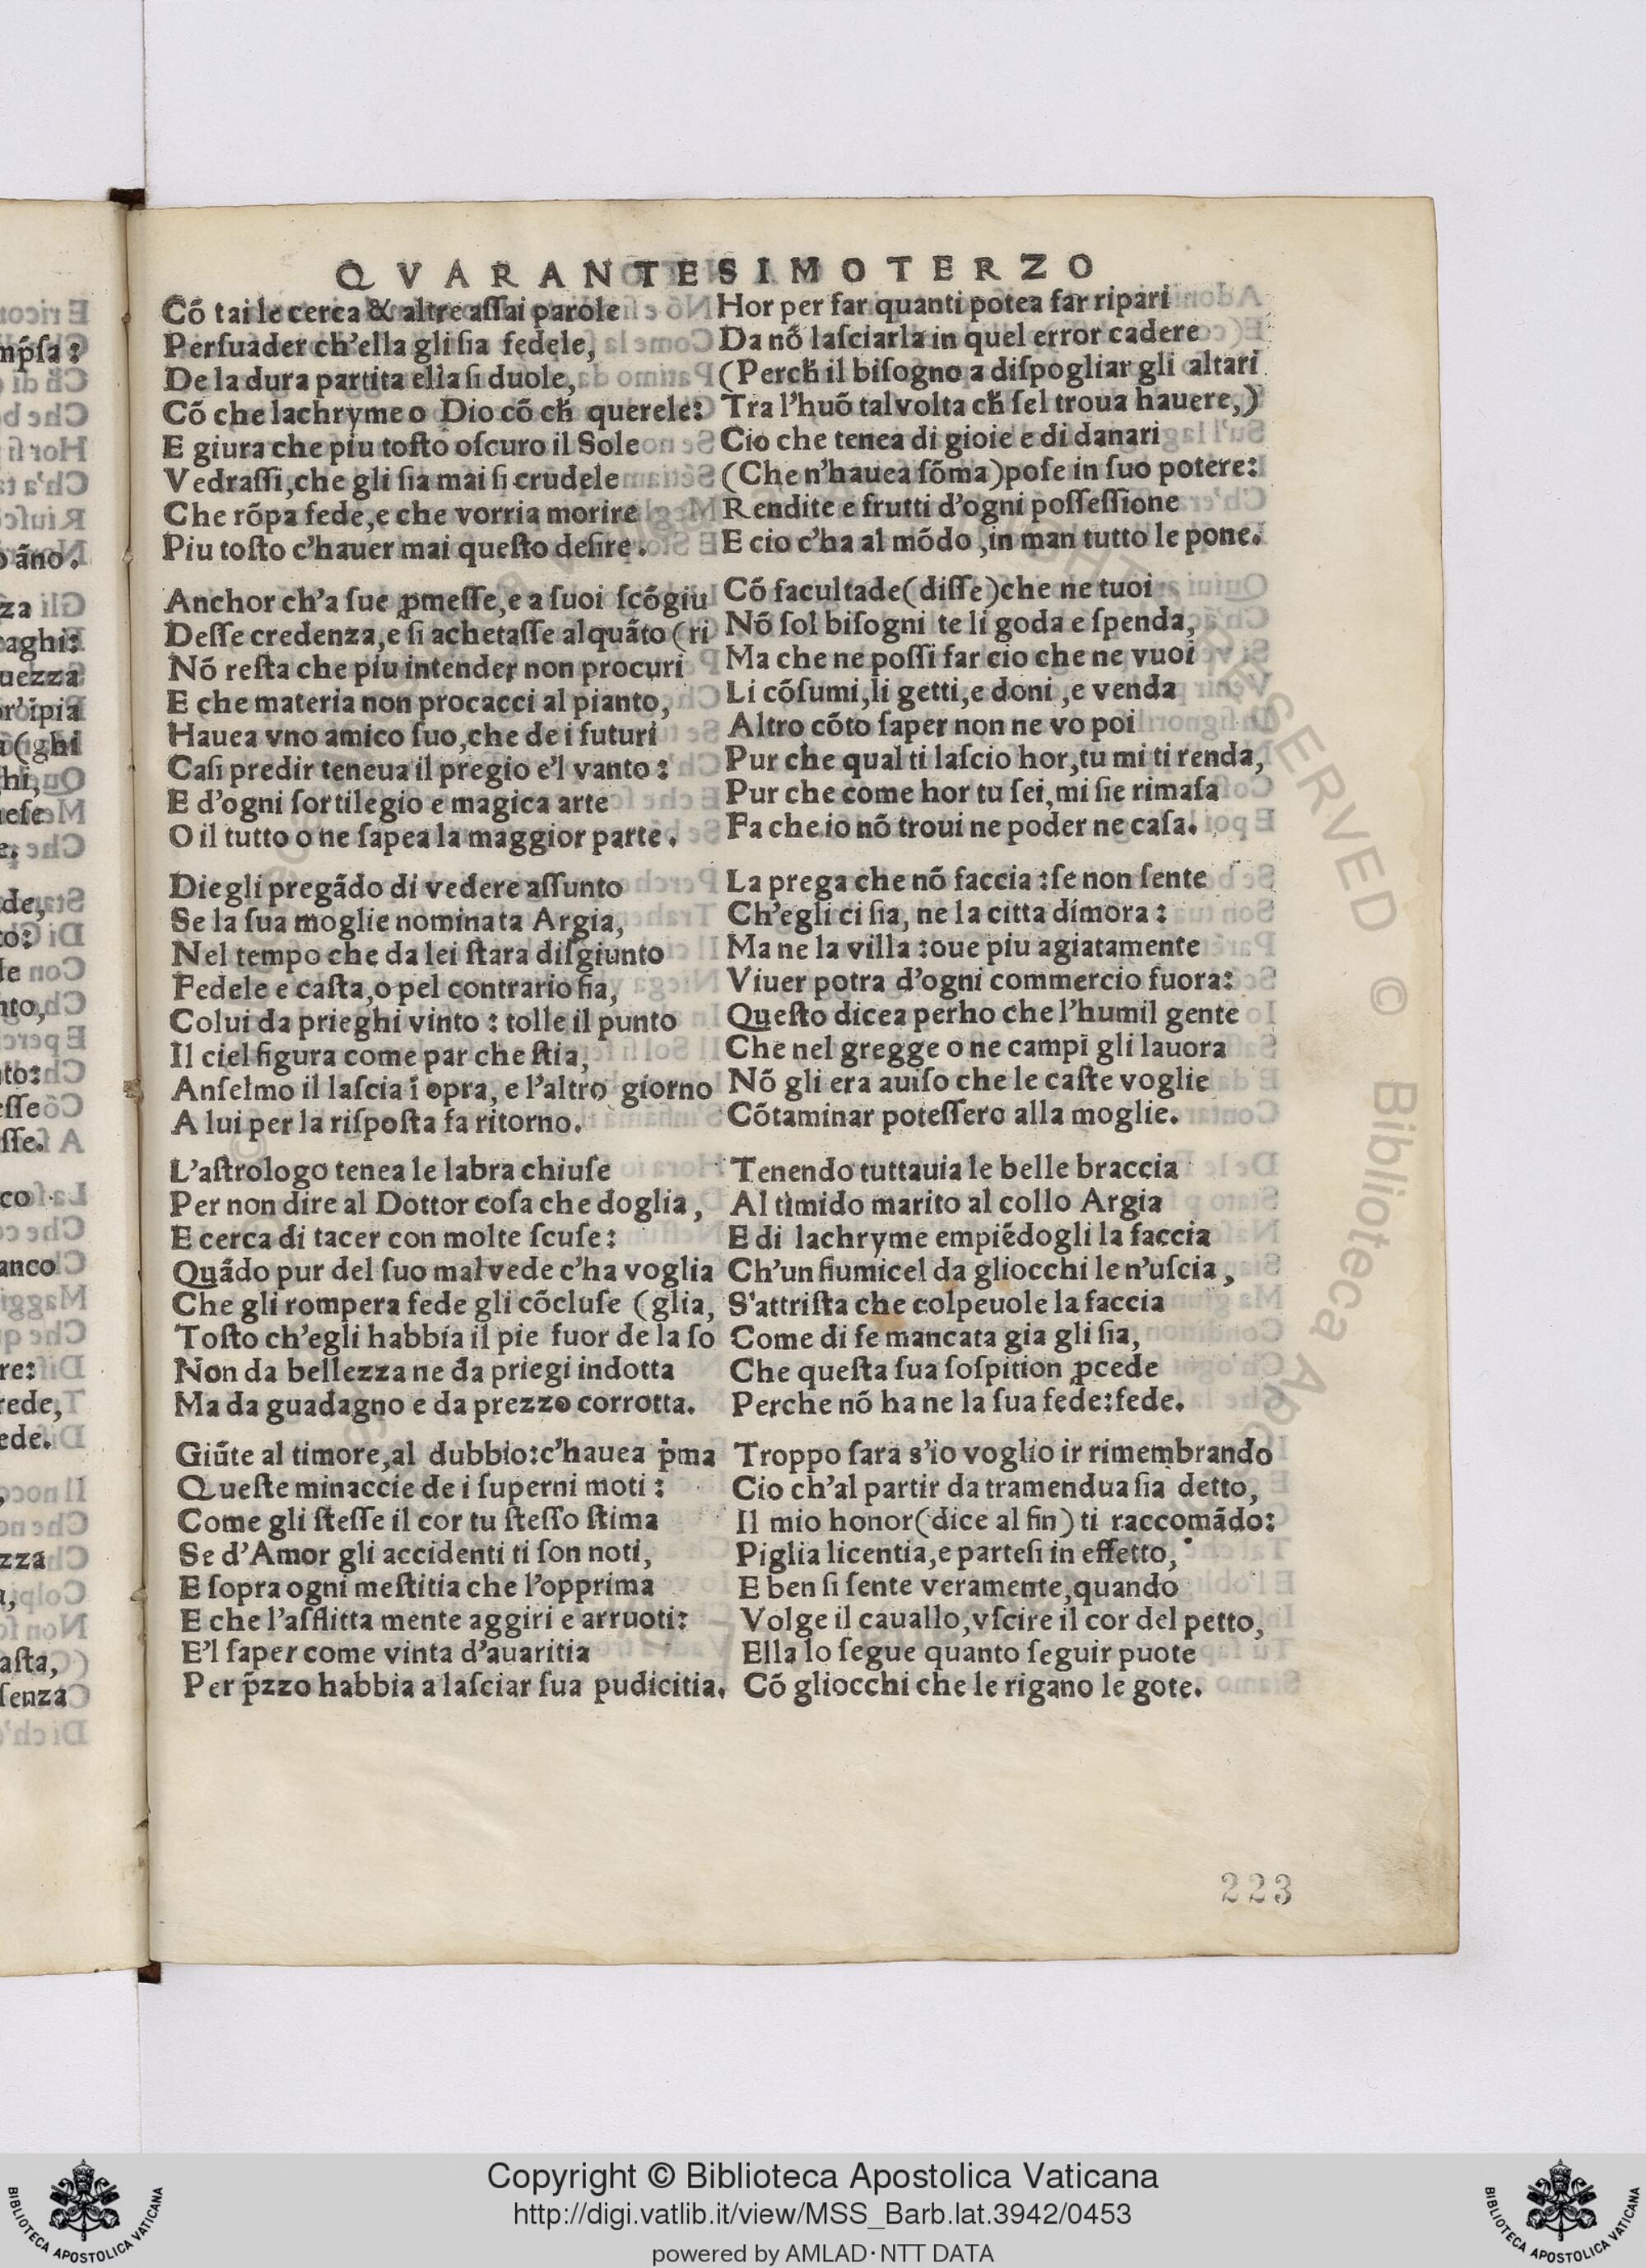 QVARANTESIMOTERZO
Cõ tai le cerca & altre aſſai parole
Perſuader ch'ella gli ſia fedele,
De la dura partita ella ſi duole,
Cõ che lachryme o Dio cõ ch̃ querele:
E giura che piu toſto oſcuro il Sole
Vedraſſi, che gli ſia mai ſi crudele
Che rõpa fede, e che vorria morire
Piu toſto c'hauer mai queſto deſire.

Anchor ch'a ſue ꝓmeſſe, e a ſuoi ſcõgiu
Deſſe credenza, e ſi achetaſſe alquãto (ri
Nõ reſta che piu intender non procuri
E che materia non procacci al pianto,
Hauea vno amico ſuo, che de i futuri
Caſi predir teneua il pregio e'l vanto:
E d'ogni ſortilegio e magica arte
O il tutto o ne ſapea la maggior parte.

Diegli pregãdo di vedere aſſunto
Se la ſua moglie nominata Argia,
Nel tempo che da lei ſtara diſgiunto
Fedele e caſta, o pel contrario ſia,
Colui da prieghi vinto: tolle il punto
Il ciel figura come par che ſtia,
Anſelmo il laſcia ĩ opra, e l'altro giorno
A lui per la riſpoſta fa ritorno.

L'aſtrologo tenea le labra chiuſe
Per non dire al Dottor coſa che doglia,
E cerca di tacer con molte ſcuſe:
Quãdo pur del ſuo mal vede c'ha voglia
Che gli rompera fede gli cõcluſe (glia,
Toſto ch'egli habbia il pie fuor de la ſo
Non da bellezza ne da priegi indotta
Ma da guadagno e da prezzo corrotta.

Giũte al timore, al dubbio: c'hauea p̃ma
Queſte minaccie de i ſuperni moti:
Come gli ſteſſe il cor tu ſteſſo ſtima
Se d'Amor gli accidenti ti ſon noti,
E ſopra ogni meſtitia che l'opprima
E che l'afflitta mente aggiri e arruoti:
E'l ſaper come vinta d'auaritia
Per p̃zzo habbia a laſciar ſua pudicitia.

Hor per far quanti potea far ripari
Da nõ laſciarla in quel error cadere
(Perch̃ il biſogno a diſpogliar gli altari
Tra l'huõ talvolta ch̃ ſel troua hauere,)
Cio che tenea di gioie e di danari
(Che n'hauea ſõma) poſe in ſuo potere:
Rendite e frutti d'ogni poſſeſſione
E cio c'ha al mõdo, in man tutto le pone.

Cõ facultade (diſſe) che ne tuoi
Nõ ſol biſogni te li goda e ſpenda,
Ma che ne poſſi far cio che ne vuoi
Li cõſumi, li getti, e doni, e venda
Altro cõto ſaper non ne vo poi
Pur che qual ti laſcio hor, tu mi ti renda,
Pur che come hor tu ſei, mi ſie rimaſa
Fa che io nõ troui ne poder ne caſa.

La prega che nõ faccia: ſe non ſente
Ch'egli ci ſia, ne la citta dimora:
Ma ne la villa: oue piu agiatamente
Viuer potra d'ogni commercio fuora:
Queſto dicea perho che l'humil gente
Che nel gregge o ne campi gli lauora
Nõ gli era auiſo che le caſte voglie
Cõtaminar poteſſero alla moglie.

Tenendo tuttauia le belle braccia
Al timido marito al collo Argia
E di lachryme empiẽdogli la faccia
Ch'un fiumicel da gliocchi le n'uſcia,
S'attriſta che colpeuole la faccia
Come di fe mancata gia gli ſia,
Che queſta ſua ſoſpition ꝓcede
Perche nõ ha ne la ſua fede: fede.

Troppo ſara s'io voglio ir rimembrando
Cio ch'al partir da tramendua ſia detto,
Il mio honor (dice al fin) ti raccomãdo:
Piglia licentia, e parteſi in effetto,
E ben ſi ſente veramente, quando
Volge il cauallo, vſcire il cor del petto,
Ella lo ſegue quanto ſeguir puote
Cõ gliocchi che le rigano le gote.
223
Copyright © Biblioteca Apostolica Vaticana
http://digi.vatlib.it/view/MSS_Barb.lat.3942/0453
powered by AMLAD·NTT DATA
BIBLIOTECA APOSTOLICA VATICANA
BIBLIOTECA APOSTOLICA VATICANA